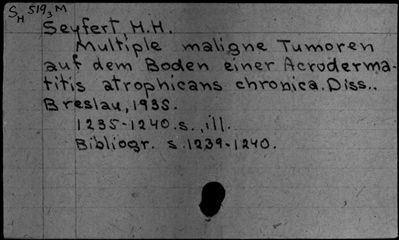 SH 519,3 M
Seyfert, H.H.
Multiple maligne Tumoren
auf dem Boden einer Acroderma-
titis atrophicans chronica. Diss..
Breslau, 1935.
1235-1240.s., ill.
Bibliogr. s. 1239-1240.